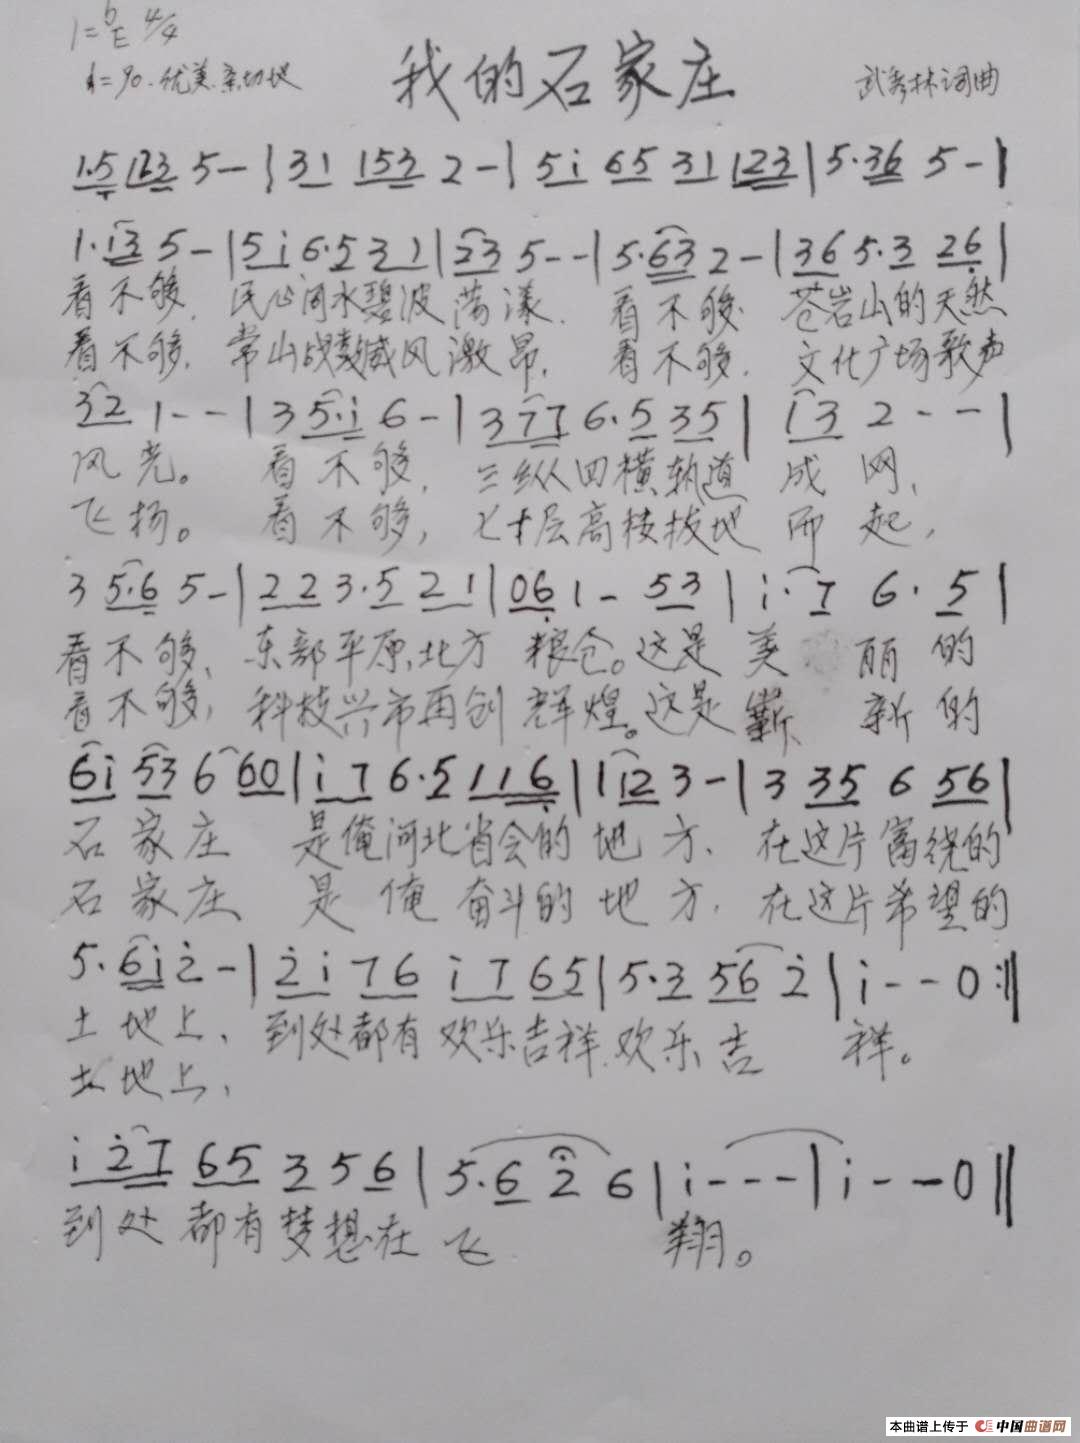 1=♭E 4/4
♩=90.优美.亲切地
我的石家庄
武秀林词曲
1.5 123 5- | 31 153 2- | 5i 65 31 123 | 5.36 5- |
1.i3 5- | 5i 6.5 31 | 23 5-- | 5.63 2- | 36 5.3 26 |
看不够, 民心河水碧波荡漾. 看不够. 苍岩山的天然
看不够, 常山战鼓威风激昂, 看不够. 文化广场歌声
32 1-- | 3 5.i 6- | 377 6.5 35 | i3 2-- |
风光。 看不够, 三纵四横轨道 成网,
飞扬。 看不够, 七十层高楼拔地 而起,
3 5.6 5- | 22 3.5 21 | 06 1- 53 | i.7 6.5 |
看不够, 东部平原,北方 粮仓。这是美丽的
看不够, 科技兴市再创 辉煌。这是崭新的
6i 53 6 60 | i7 6.5 116 | 1 i2 3- | 3 35 6 56 |
石家庄 是俺河北省会的地方、在这片富绕的
石家庄 是俺奋斗的地方, 在这片希望的
5.6i 2- | 2i 76 i7 65 | 5.3 56 2 | i--0 :||
土地上、到处都有欢乐吉祥.欢乐吉 祥。
土地上,
i 27 65 3 5 6 | 5.6 2 6 | i--- | i--0 ||
到处都有梦想在飞 翔。
本曲谱上传于 中国曲谱网